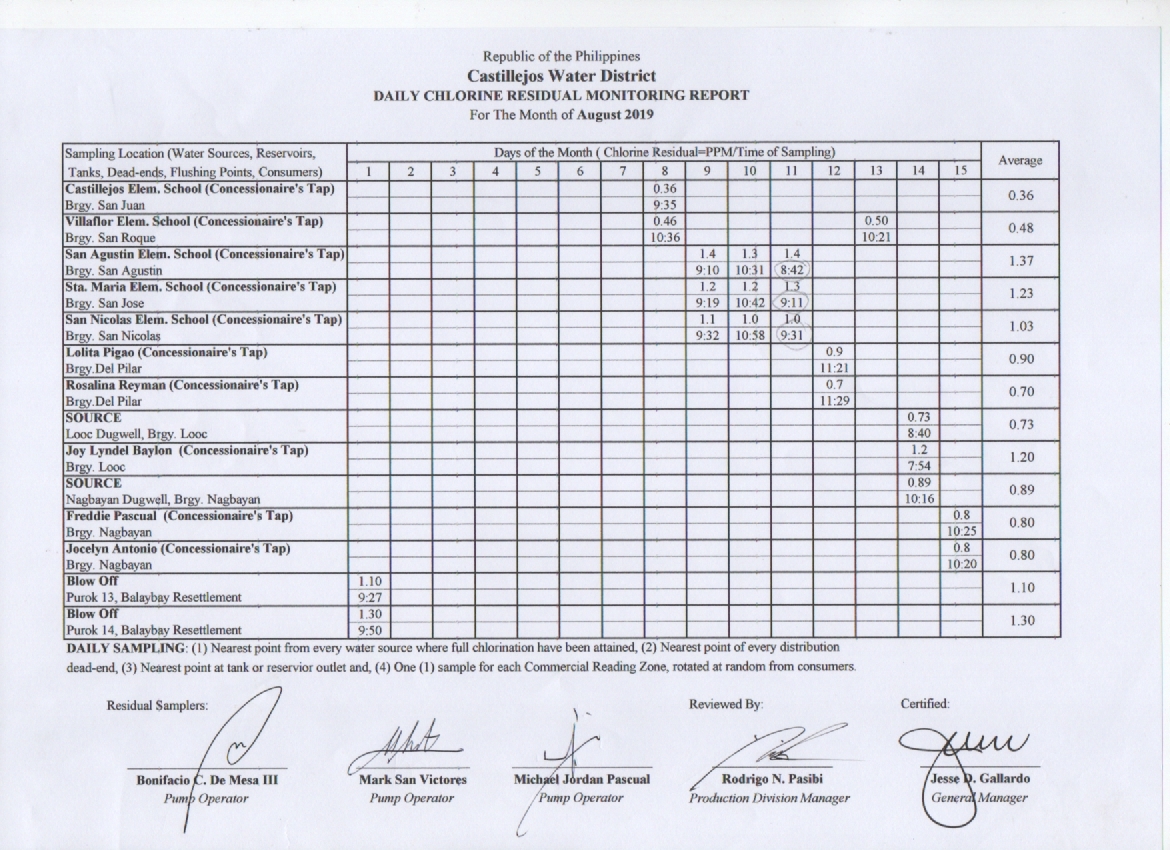 Republic of the Philippines
Castillejos Water District
DAILY CHLORINE RESIDUAL MONITORING REPORT
For The Month of August 2019
Sampling Location (Water Sources, Reservoirs, Tanks, Dead-ends, Flushing Points, Consumers) Days of the Month ( Chlorine Residual=PPM/Time of Sampling) Average
1 2 3 4 5 6 7 8 9 10 11 12 13 14 15
Castillejos Elem. School (Concessionaire's Tap) 0.36 0.36
Brgy. San Juan 9:35
Villaflor Elem. School (Concessionaire's Tap) 0.46 0.50 0.48
Brgy. San Roque 10:36 10:21
San Agustin Elem. School (Concessionaire's Tap) 1.4 1.3 1.4 1.37
Brgy. San Agustin 9:10 10:31 8:42
Sta. Maria Elem. School (Concessionaire's Tap) 1.2 1.2 1.3 1.23
Brgy. San Jose 9:19 10:42 9:11
San Nicolas Elem. School (Concessionaire's Tap) 1.1 1.0 1.0 1.03
Brgy. San Nicolas 9:32 10:58 9:31
Lolita Pigao (Concessionaire's Tap) 0.9 0.90
Brgy.Del Pilar 11:21
Rosalina Reyman (Concessionaire's Tap) 0.7 0.70
Brgy.Del Pilar 11:29
SOURCE 0.73 0.73
Looc Dugwell, Brgy. Looc 8:40
Joy Lyndel Baylon (Concessionaire's Tap) 1.2 1.20
Brgy. Looc 7:54
SOURCE 0.89 0.89
Nagbayan Dugwell, Brgy. Nagbayan 10:16
Freddie Pascual (Concessionaire's Tap) 0.8 0.80
Brgy. Nagbayan 10:25
Jocelyn Antonio (Concessionaire's Tap) 0.8 0.80
Brgy. Nagbayan 10:20
Blow Off 1.10 1.10
Purok 13, Balaybay Resettlement 9:27
Blow Off 1.30 1.30
Purok 14, Balaybay Resettlement 9:50
DAILY SAMPLING: (1) Nearest point from every water source where full chlorination have been attained, (2) Nearest point of every distribution
dead-end, (3) Nearest point at tank or reservior outlet and, (4) One (1) sample for each Commercial Reading Zone, rotated at random from consumers.
Residual Samplers: Reviewed By: Certified:
Bonifacio C. De Mesa III Mark San Victores Michael Jordan Pasqual Rodrigo N. Pasibi Jesse D. Gallardo
Pump Operator Pump Operator Pump Operator Production Division Manager General Manager